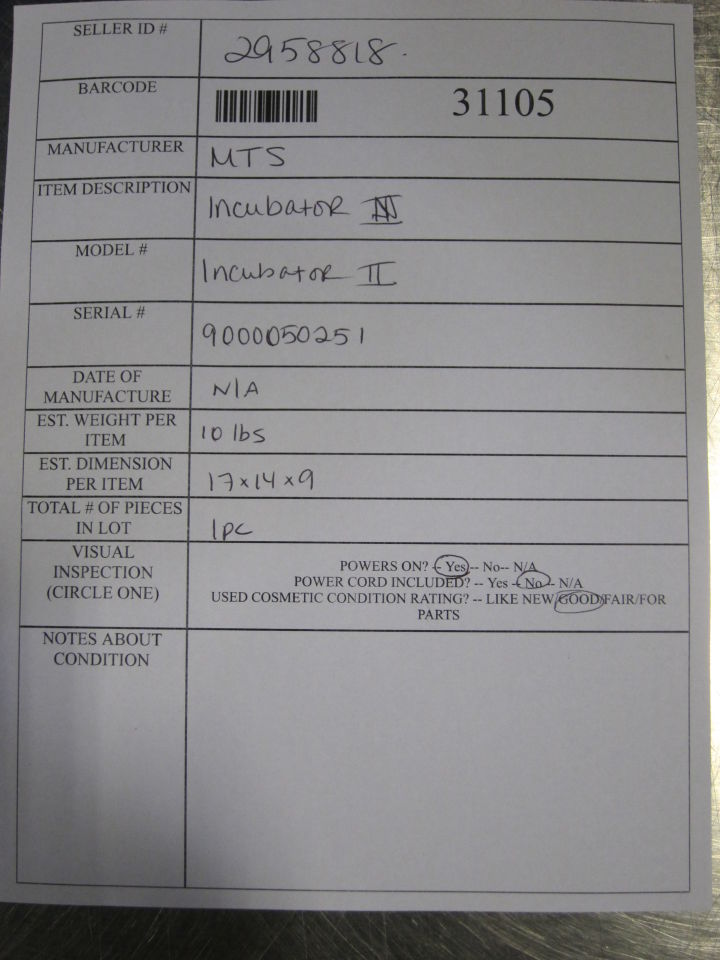 SELLER ID #
2958818.
BARCODE
31105
MANUFACTURER
MTS
ITEM DESCRIPTION
Incubator
MODEL #
Incubator II
SERIAL #
9000050251
DATE OF
MANUFACTURE
N/A
EST. WEIGHT PER
ITEM
10 lbs
EST. DIMENSION
PER ITEM
17x14x9
TOTAL # OF PIECES
IN LOT
1pc
VISUAL
INSPECTION
(CIRCLE ONE)
POWERS ON? -- Yes -- No-- N/A
POWER CORD INCLUDED? -- Yes -- No -- N/A
USED COSMETIC CONDITION RATING? -- LIKE NEW/GOOD/FAIR/FOR
PARTS
NOTES ABOUT
CONDITION